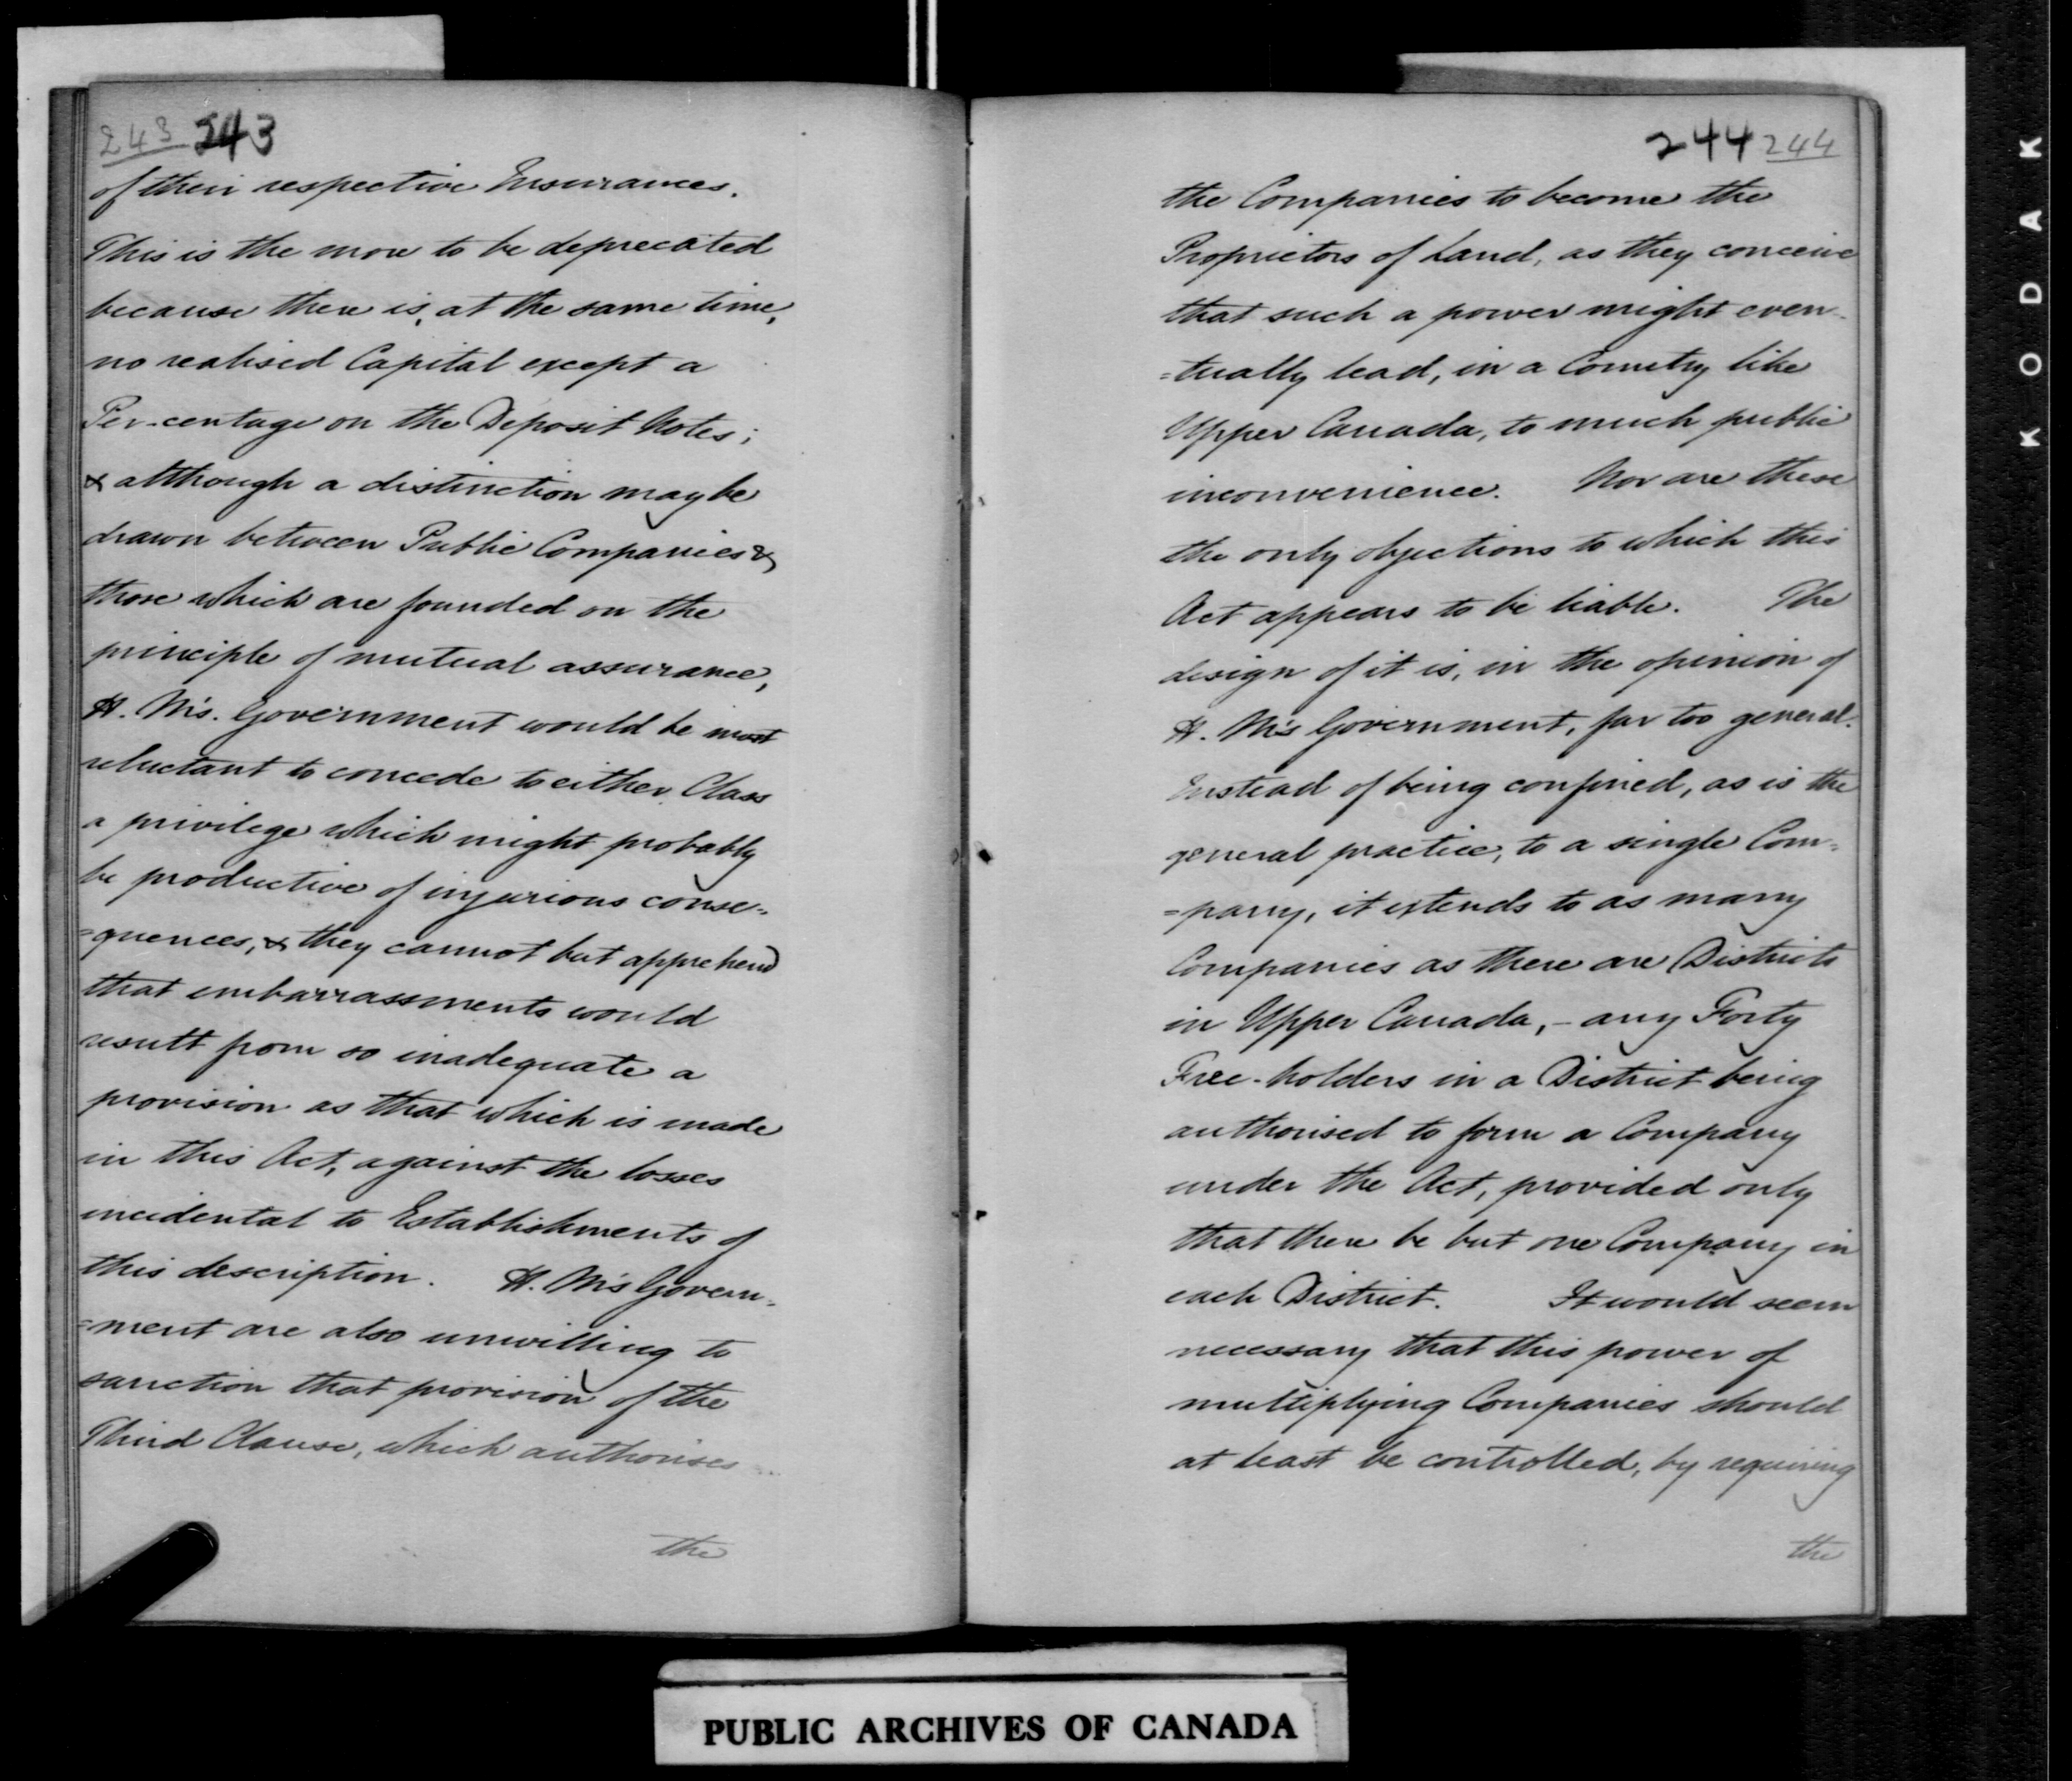 243 243
of their respective Insurances.
This is the more to be deprecated
because there is, at the same time,
no realised Capital except a
Per-centage on the Deposit Notes;
& although a distinction may be
drawn between Public Companies &
those which are founded on the
principle of mutual assurance,
H. M's. Government would be most
reluctant to concede to either Class
a privilege which might probably
be productive of injurious conse-
=quences, & they cannot but apprehend
that embarrassments would
result from so inadequate a
provision as that which is made
in this Act, against the losses
incidental to Establishments of
this description. H. M's Govern-
=ment are also unwilling to
sanction that provision of the
Third Clause, which authorises
the
244 244
the Companies to become the
Proprietors of Land, as they conceive
that such a power might even-
=tually lead, in a Country like
Upper Canada, to much public
inconvenience. Nor are these
the only objections to which this
Act appears to be liable. The
design of it is, in the opinion of
H. M's Government, far too general.
Instead of being confined, as is the
general practice, to a single Com=
=pany, it extends to as many
Companies as there are Districts
in Upper Canada, - any Forty
Free-holders in a District being
authorised to form a Company
under the Act, provided only
that there be but one Company in
each District. It would seem
necessary that this power of
multiplying Companies should
at least be controlled, by requiring
the
KODAK
PUBLIC ARCHIVES OF CANADA